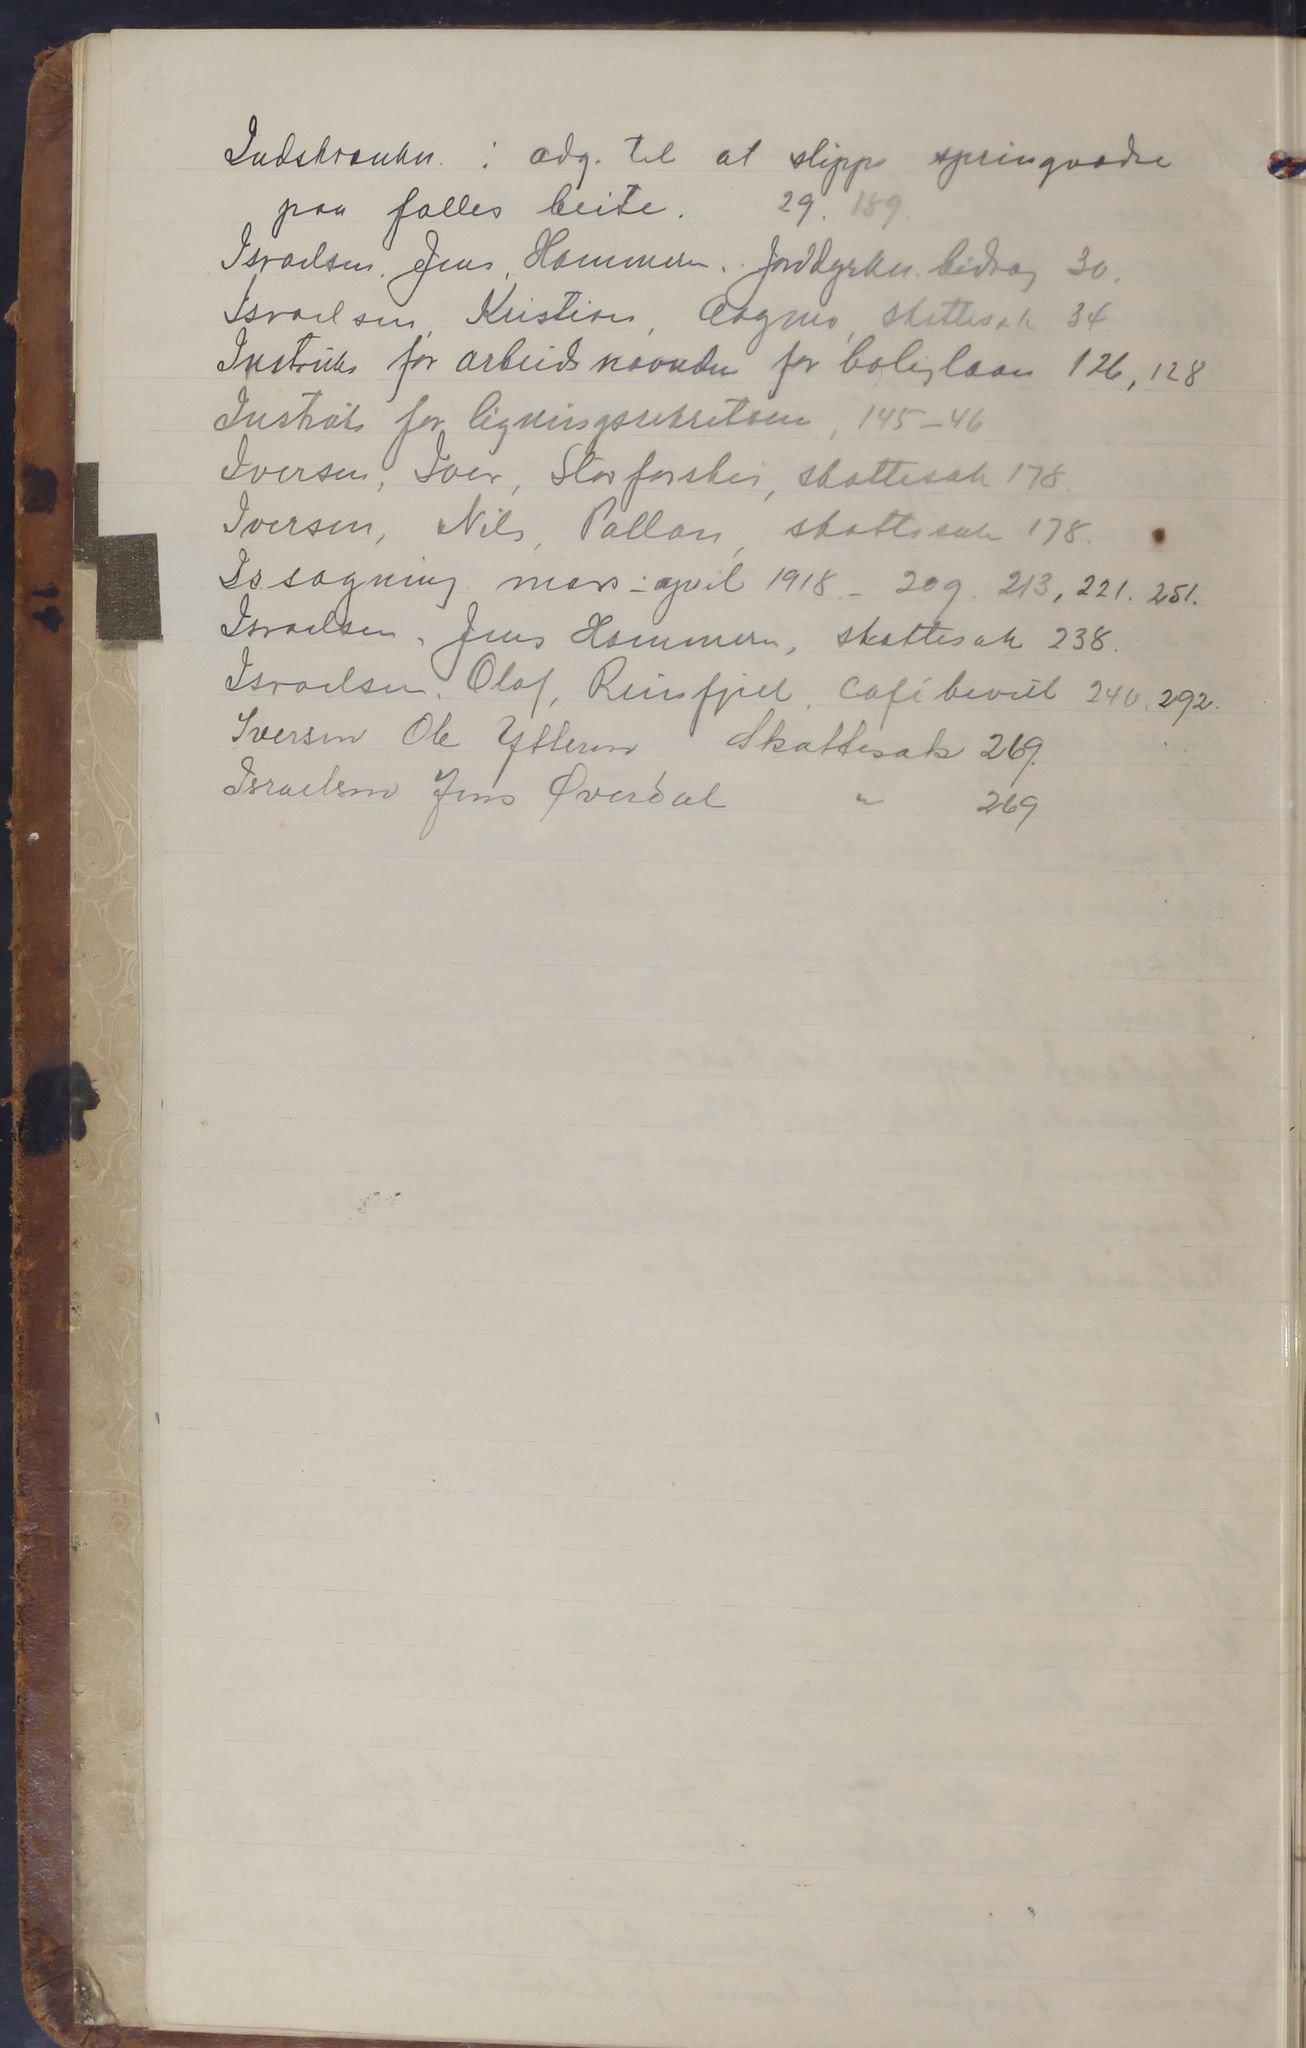 Indskrænkn. i adg. til at slippe springvædre
paa fælles beite. 29. 189.
Israelsen, Jens, Hammern. Jorddyrkn. bidrag 30.
Israelsen, Kristian, Aagmo, skattesak 34.
Instruks for arbeidsnævnden for boliglaan 126, 128
Instruks for ligningssekretæren, 145-46
Iversen, Iver, Storforshei, skattesak 178.
Iversen, Nils, Pallan, skattesak 178.
Issagning mars-april 1918 - 209. 213, 221. 251.
Israelsen, Jens Hammern, skattesak 238.
Israelsen, Olaf, Reinfjel, Cafébevill 240. 292.
Iversen Ole Ytteren Skattesak 269.
Israelsen Jens Øverdal " 269